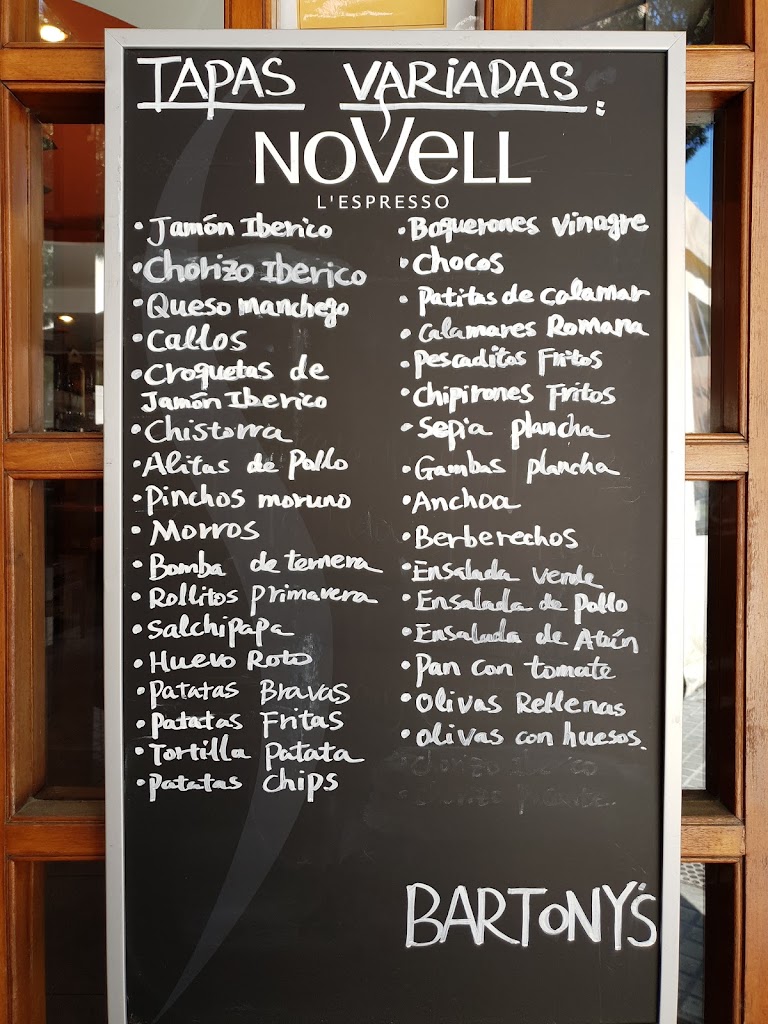 TAPAS VARIADAS:
NOVELL
L'ESPRESSO
• Jamón Iberico
• Chorizo Iberico
• Queso manchego
• Callos
• Croquetas de
Jamón Iberico
• Chistorra
• Alitas de Pollo
• Pinchos moruno
• Morros
• Bomba de ternera
• Rollitos primavera
• Salchipapa
• Huevo Roto
• Patatas Bravas
• Patatas Fritas
• Tortilla patata
• Patatas chips
• Boquerones Vinagre
• Chocos
• Patitas de calamar
• Calamares Romana
• Pescaditos Fritos
• Chipirones Fritos
• Sepia plancha
• Gambas plancha
• Anchoa
• Berberechos
• Ensalada verde
• Ensalada de pollo
• Ensalada de Atún
• Pan con tomate
• Olivas Rellenas
• Olivas con huesos.
• Chorizo Iberico
• Chorizo
BARTONY'S